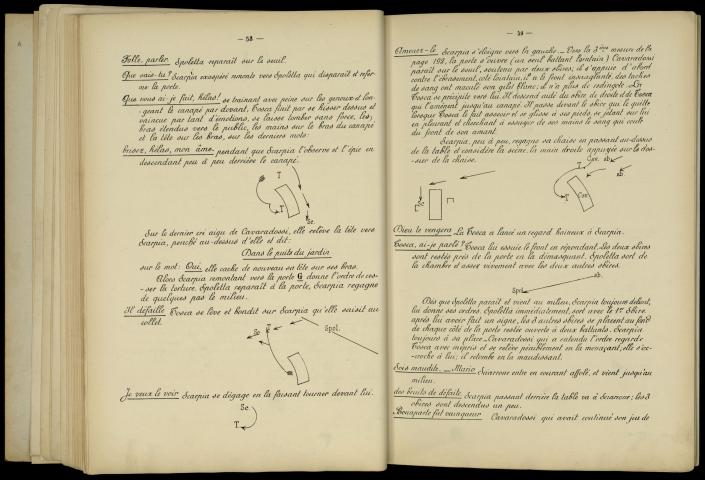 — 58 —
Folle, parler Spoletta reparaît sur le seuil.
Que sais-tu? Scarpia exaspéré remonte vers Spoletta qui disparaît et refer-
me la porte.
Que vous ai-je fait, hélas! se traînant avec peine sur les genoux et lon-
geant le canapé par devant, Tosca finit par se hisser dessus et
vaincue par tant d'émotions, se laisse tomber sans force, les
bras étendus vers le public, les mains sur le bras du canapé
et la tête sur les bras, sur les derniers mots:
brisez, hélas, mon âme, pendant que Scarpia l'observe et l'épie en
descendant peu à peu derrière le canapé.
T
T
Sc.
Sur le dernier cri aigu de Cavaradossi, elle relève la tête vers
Scarpia, penché au-dessus d'elle et dit:
Dans le puits du jardin
sur le mot: Oui, elle cache de nouveau sa tête sur ses bras.
Alors Scarpia remontant vers la porte G donne l'ordre de ces-
-ser la torture. Spoletta reparaît à la porte, Scarpia regagne
de quelques pas le milieu.
Il défaille Tosca se lève et bondit sur Scarpia qu'elle saisit au
collet.
Sc.
T
Spol.
Je veux le voir Scarpia se dégage en la faisant tourner devant lui.
Sc.
T.
— 59 —
Amenez-le Scarpia s'éloigne vers la gauche. — Vers la 3ème mesure de la
page 192, la porte s'ouvre (un seul battant lointain) Cavaradossi
paraît sur le seuil, soutenu par deux sbires; il s'appuie d'abord
contre l'ébrasement, côté lointain, il a le front ensanglanté, des taches
de sang ont maculé son gilet blanc; il n'a plus de redingote. — La
Tosca se précipite vers lui. Il descend aidé du sbire de droite et de Tosca
qui l'amènent jusqu'au canapé. Il passe devant le sbire qui le quitte
lorsque Tosca le fait asseoir et se glisse à ses pieds, se jetant sur lui
en pleurant et cherchant à essuyer de ses mains le sang qui coule
du front de son amant.
Scarpia, peu à peu, regagne sa chaise en passant au-dessus
de la table et considère la scène, la main droite appuyée sur le dos-
-sier de la chaise.
T
Cav. sb.
sb.
T
Cav.
Dieu le vengera La Tosca a lancé un regard haineux à Scarpia.
Tosca, ai-je parlé? Tosca lui essuie le front en répondant. Les deux sbires
sont restés près de la porte en la démasquant. Spoletta sort de
la chambre et assez vivement avec les deux autres sbires.
sb.
Spol.
Dès que Spoletta paraît et vient au milieu, Scarpia toujours debout,
lui donne ses ordres. Spoletta immédiatement, sort avec le 1er sbire
après lui avoir fait un signe, les 3 autres sbires se placent au fond
de chaque côté de la porte restée ouverte à deux battants. Scarpia
toujours à sa place. — Cavaradossi qui a entendu l'ordre regarde
Tosca avec mépris et se relève péniblement en la menaçant; elle s'ac-
-croche à lui; il retombe en la maudissant.
Sois maudite. — Mario Sciarrone entre en courant affolé, et vient jusqu'au
milieu.
des bruits de défaite Scarpia passant derrière la table va à Sciarrone; les 3
sbires sont descendus un peu.
Bonaparte fut vainqueur Cavaradossi qui avait continué son jeu de